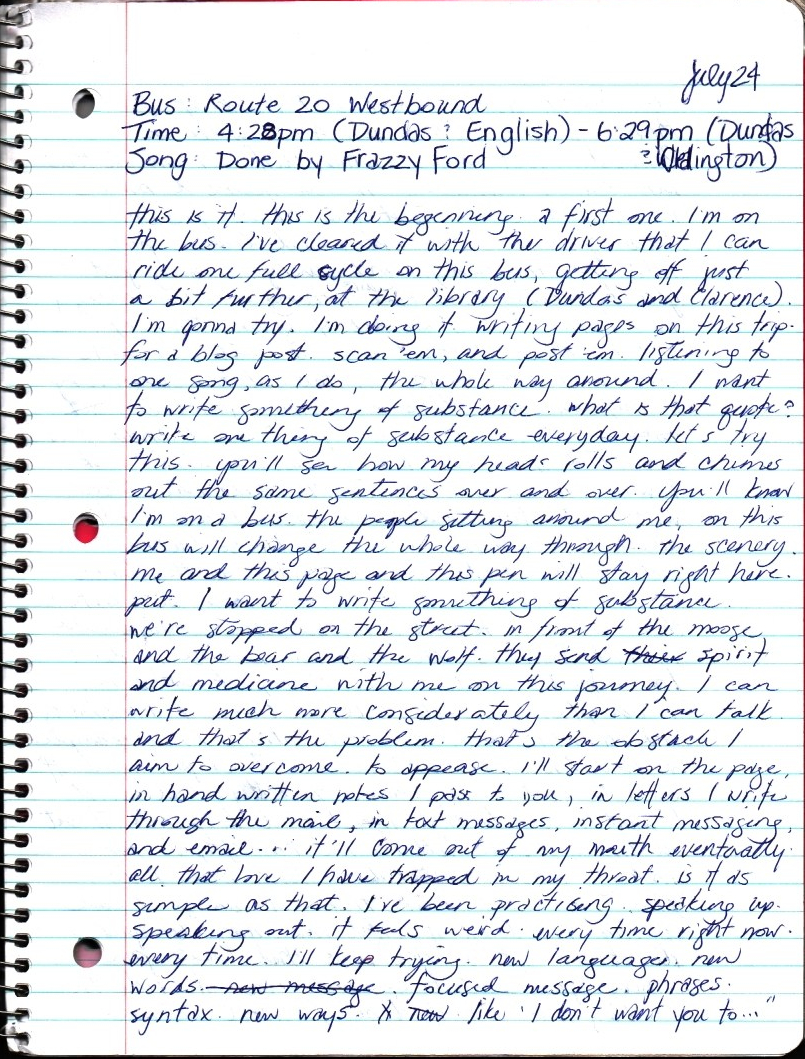 July 24
Bus: Route 20 Westbound
Time: 4:28pm (Dundas & English) - 6:29pm (Dundas
Song: Done by Frazzy Ford & Wellington)
this is it. this is the beginning. a first one. I'm on
the bus. I've cleared it with the driver that I can
ride one full cycle on this bus, getting off just
a bit further, at the library (Dundas and Clarence).
I'm gonna try. I'm doing it writing pages on this trip.
for a blog post. scan 'em, and post 'em. listening to
one song, as I do, the whole way around. I want
to write something of substance. what is that quote?
write one thing of substance everyday. let's try
this. you'll see how my heads rolls and chimes
out the same sentences over and over. you'll know
I'm on a bus. the people sitting around me, on this
bus will change the whole way through. the scenery.
me and this page and this pen will stay right here.
put. I want to write something of substance.
we're stopped on the street. in front of the moose,
and the bear and the wolf. they send their spirit
and medicine with me on this journey. I can
write much more considerately than I can talk.
and that's the problem. that's the obstacle I
aim to overcome. to appease. I'll start on the page,
in hand written notes I pass to you, in letters I write
through the mail, in text messages, instant messaging,
and email... it'll come out of my mouth eventually.
all that love I have trapped in my throat. is it as
simple as that. I've been practising. speaking up.
speaking out. it feels weird. every time right now.
every time. I'll keep trying. new languages. new
words. new message. focused message. phrases.
syntax. new ways. new like "I don't want you to..."